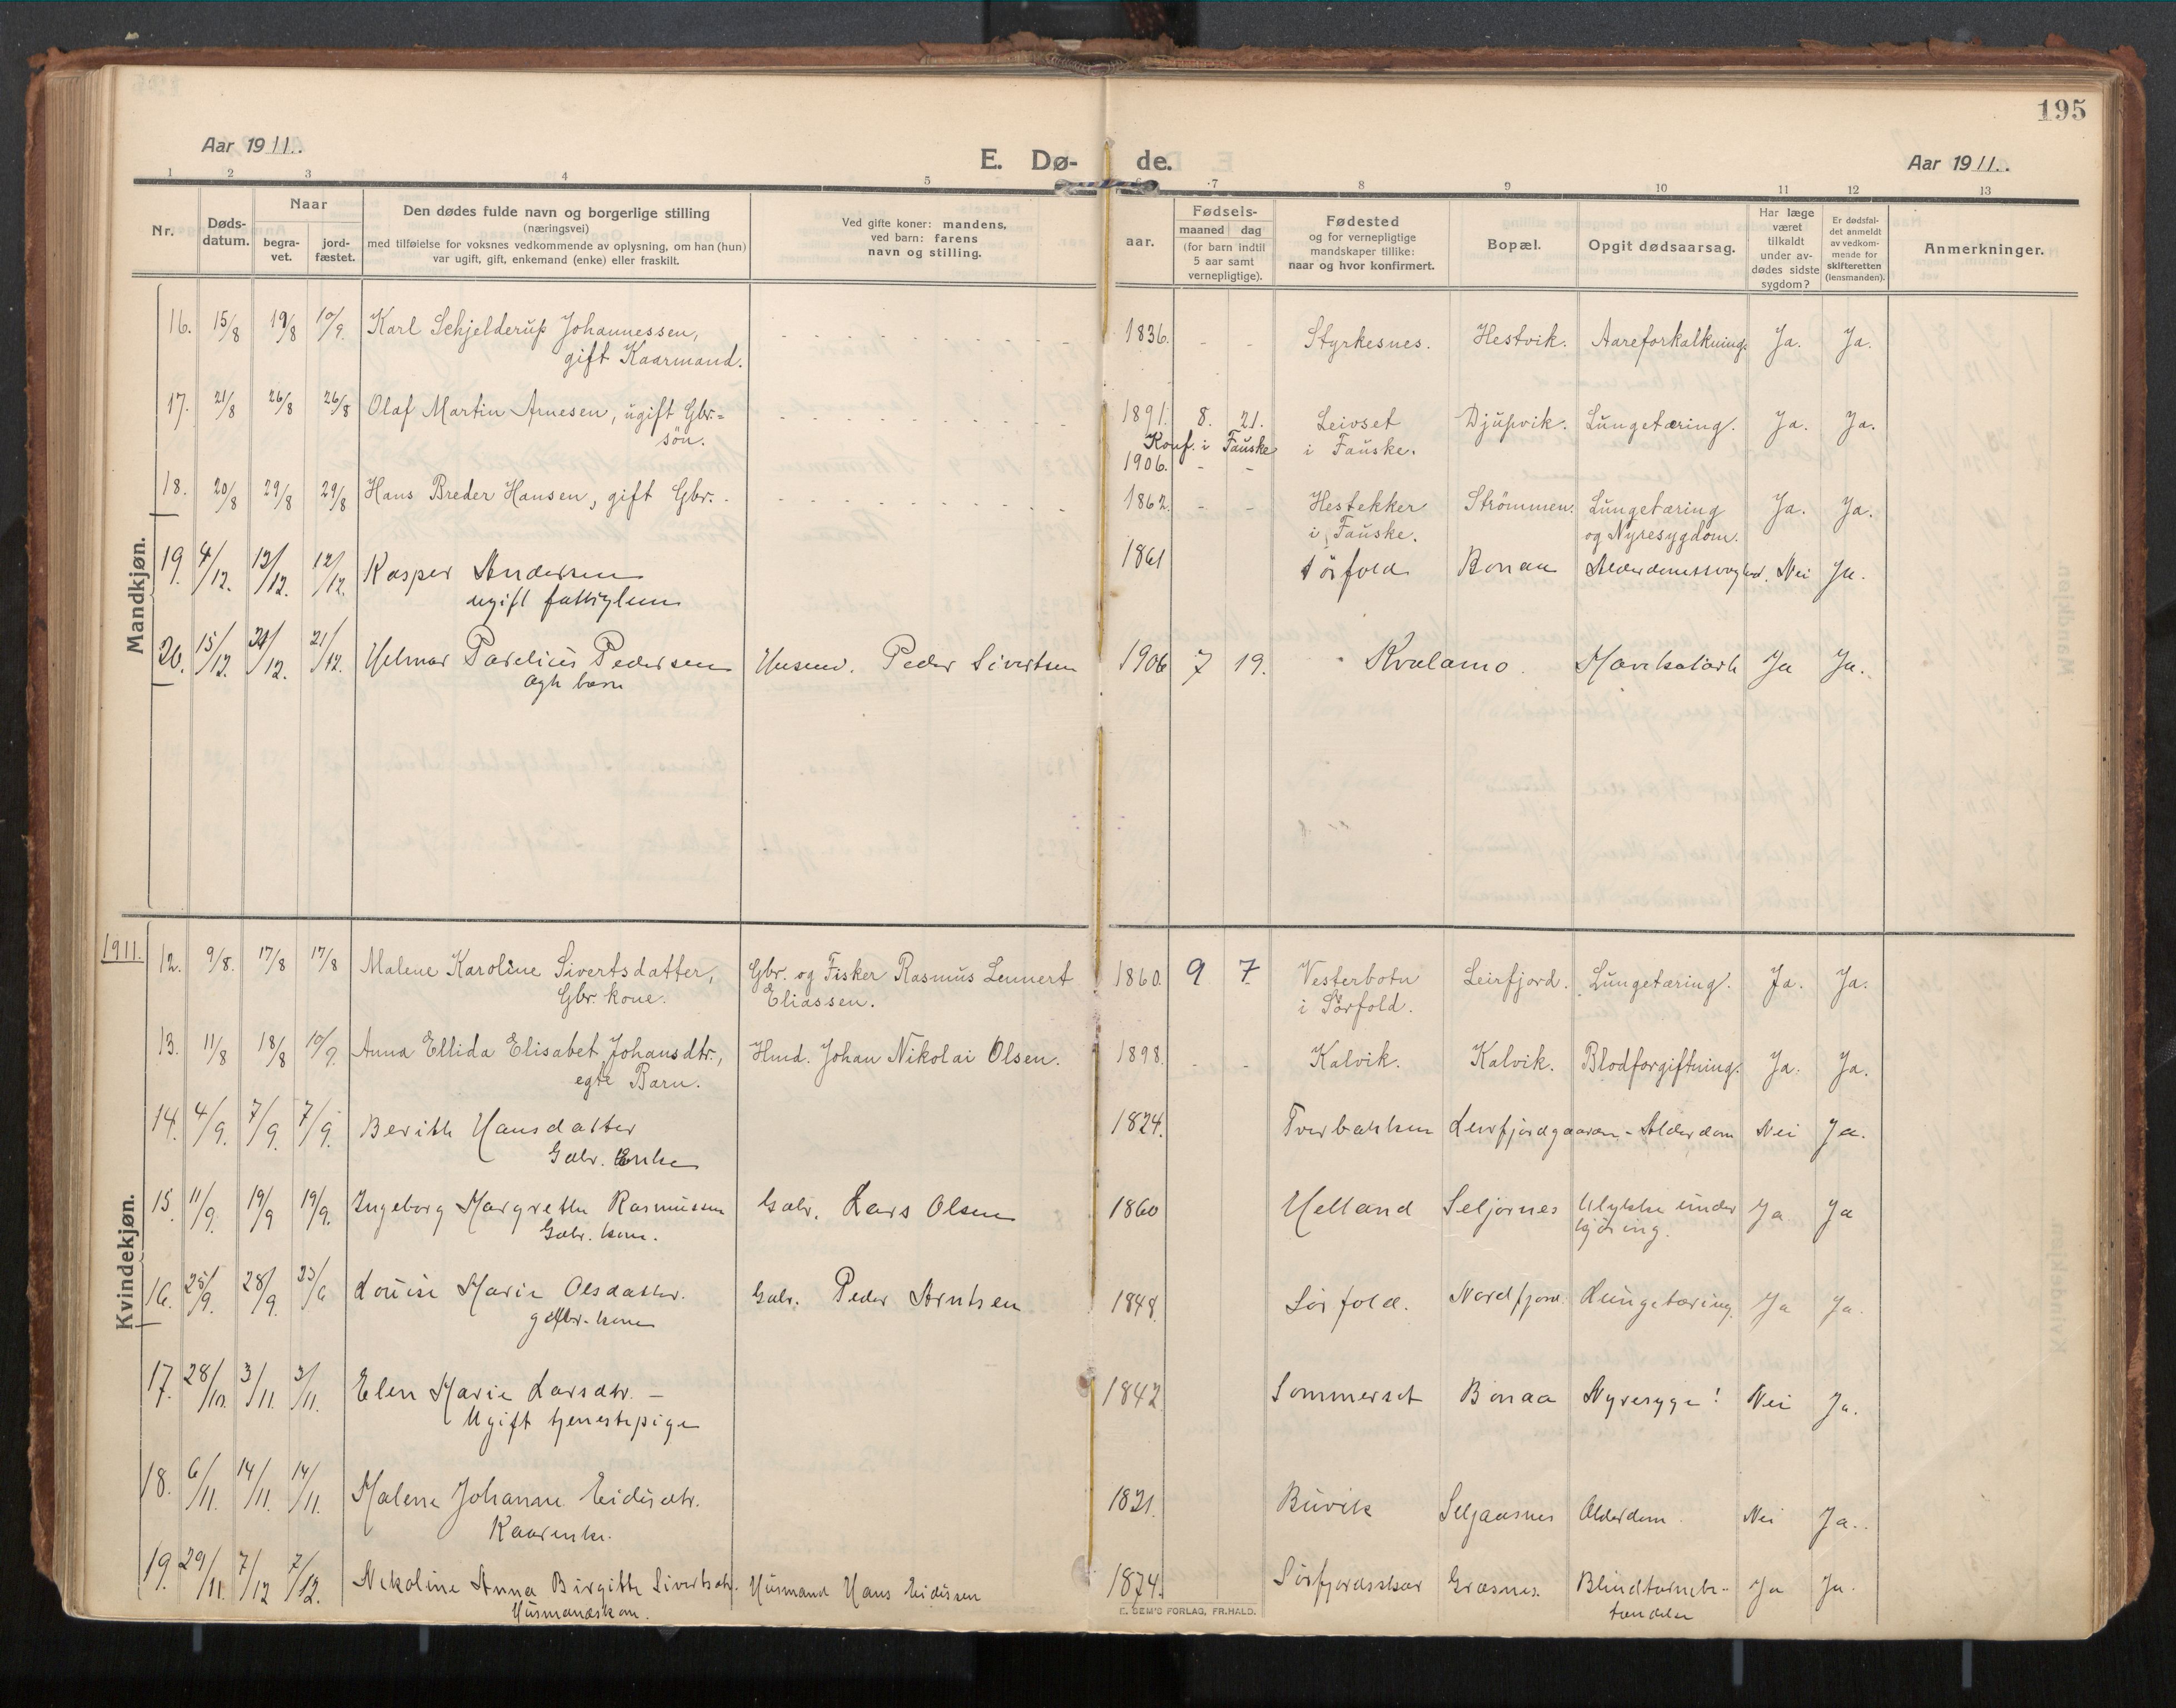 195
Aar 1911.
E. Dø- de.
Aar 1911.
1 2 3 4 5 6 7 8 9 10 11 12 13
Nr.
Døds-
datum.
Naar
begra-
vet.
jord-
fæstet.
Den dødes fulde navn og borgerlige stilling
(næringsvei)
med tilføielse for voksnes vedkommende av oplysning, om han (hun)
var ugift, gift, enkemand (enke) eller fraskilt.
Ved gifte koner: mandens,
ved barn: farens
navn og stilling.
aar.
Fødsels-
maaned dag
(for barn indtil
5 aar samt
vernepligtige).
Fødested
og for vernepligtige
mandskaper tillike:
naar og hvor konfirmert.
Bopæl.
Opgit dødsaarsag.
Har læge
været
tilkaldt
under av-
dødes sidste
sygdom?
Er dødsfal-
det anmeldt
av vedkom-
mende for
skifteretten
(lensmanden).
Anmerkninger.
Mandkjøn.
16. 15/8 19/8 10/9. Karl Schjelderup Johannessen, 1836. - - Styrkesnes. Hestvik. Aareforkalkning. Ja. Ja.
gift Kaarmand.
17. 21/8 26/8 26/8 Olaf Martin Arnesen, ugift Gbr= 1891. 8. 21. Leivset Djupvik. Lungetæring. Ja. Ja.
søn. Konf. i Fauske i Fauske.
1906. - -
18. 20/8 29/8 29/8 Hans Breder Hansen, gift Gbr. 1862. - - Hestekker Strömmen. Lungetæring Ja. Ja.
i Fauske. og Nyresygdom.
19. 4/12. 12/12. 12/12. Kasper Andersen 1861 Sörfold Bonaa Alderdomssvaghed. Nei Ja.
ugift fattiglem
20. 15/12. 21/12. 21/12. Helmar Parelius Pedersen Husm. Peder Sivertsen 1906 7 19. Kvalamo. Ja Ja.
ægte barn
Kvindekjøn.
1911. 12. 9/8. 17/8 17/8 Malene Karoline Sivertsdatter, Gbr. og Fisker Rasmus Lennert 1860. 9 7. Vesterbotn Leirfjord. Lungetæring. Ja. Ja.
Gbr. kone. Eliassen. i Sörfold.
13. 11/8 18/8 10/9. Anna Ellida Elisabet Johansdtr., Hmd. Johan Nikolai Olsen. 1898. - - Kalvik. Kalvik. Blodforgiftning. Ja. Ja.
egte Barn.
14. 4/9. 7/9. 7/9. Berith Hansdatter 1824. Tverbakken Leirfjordgaarden - Alderdom Nei Ja.
Gabr. Enke
15. 11/9. 19/9 19/9. Ingeborg Margrethe Rasmussen Gabr. Lars Olsen 1860 Helland Seljornes Ulykke under Ja Ja
Gabr. kone. kjöring.
16. 25/9. 28/9. 23/6 Louise Marie Olsdatter. Gabr. Peder Arntsen 1848. Sörfold. Nordfjord. Lungetæring. Ja Ja.
gabr. kone
17. 28/10. 3/11. 3/11. Elen Marie Larsdtr. - 1842 Sommerset Bonaa Nyresyge! Nei Ja.
Ugift tjenestepige
18. 6/11. 14/11. 14/11. Malene Johanne Eidisdtr. 1821. Buvik Seljaasnes Alderdom. Nei Ja.
Kaarenke.
19. 29/11. 7/12 7/12. Nikoline Anna Birgitte Sivertsdtr. Husmand Hans Eidissen 1874. Sörfjordsskar Græsnes. Blindtarmbe- Ja Ja.
Husmandskone. tændelse
E. SEM'S FORLAG, FR.HALD.